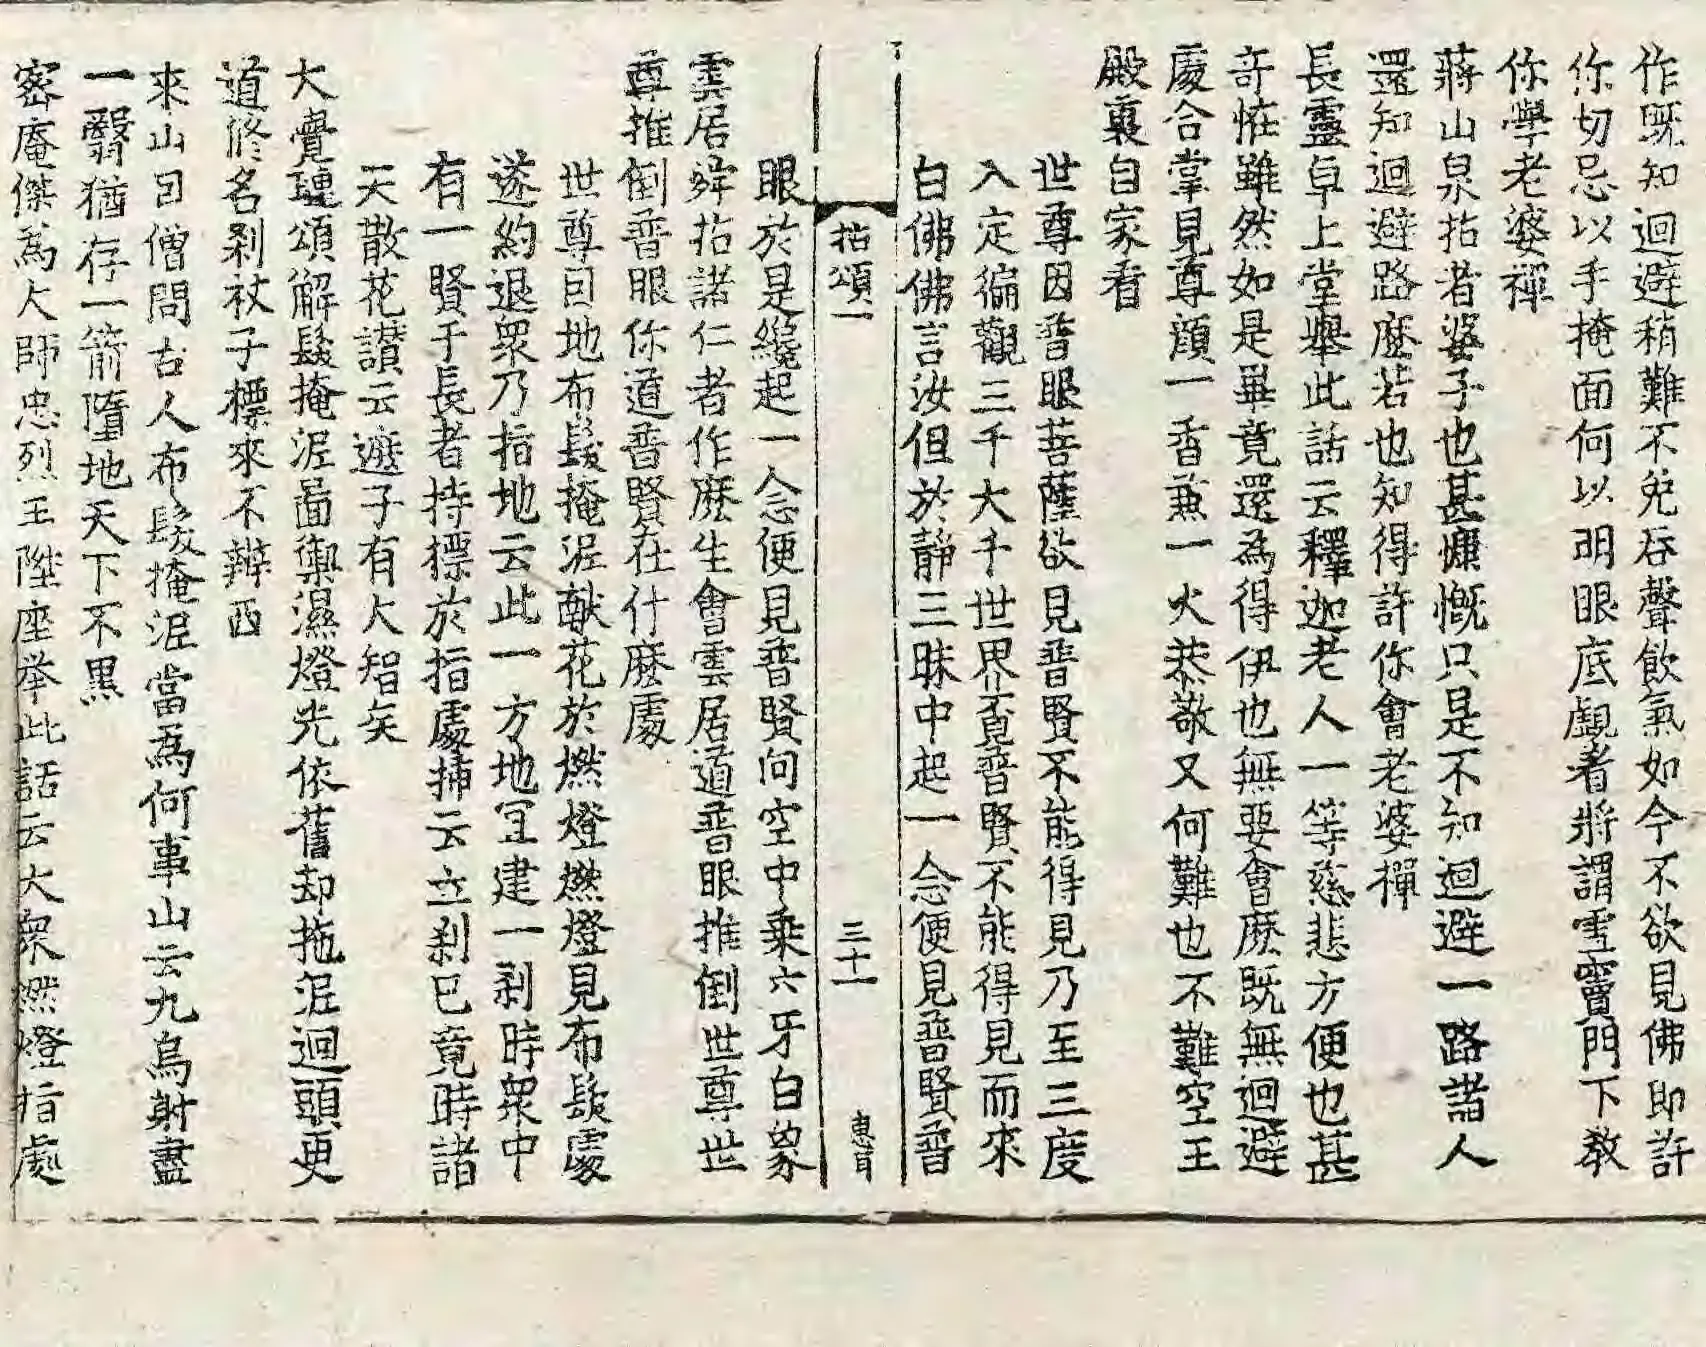 作既知迴避稍難不免吞聲飲氣如今不欲見佛即許
你切忌以手掩面何以明眼底覷著將謂雪竇門下教
你學老婆禪
蔣山泉拈老婆子也甚慷慨只是不知迴避一路諸人
還知迴避路麽若也知得許你會老婆禪
長靈卓上堂擧此話云釋迦老人一等慈悲方便也甚
奇恠雖然如是畢竟還爲得伊也無要會麽既無迴避
處合掌見尊顔一香兼一火恭敬又何難也不難空王
殿裏自家看
世尊因普眼菩薩欲見普賢不能得見乃至三度
入定徧觀三千大千世界覔普賢不能得見而來
白佛佛言汝但於靜三昧中起一念便見普賢普
拈頌一
三十一
惠苜
眼於是纔起一念便見普賢向空中乘六牙白象
雲居舜拈諸仁者作麽生會雲居道普眼推倒世尊世
尊推倒普眼你道普賢在什麽處
世尊因地布髮掩泥献花於燃燈燃燈見布髮處
遂約退眾乃指地云此一方地冝建一刹時眾中
有一賢于長者持標於指處揷云立刹已竟時諸
天散花讃云遮子有大智矣
大覺璉頌解髮掩泥面禦濕燈光依舊却拖泥迴頭更
道修名刹杖子標來不辨西
來山因僧問古人布髮掩泥當爲何事山云九烏射盡
一翳猶存一箭墮地天下不黑
密庵傑爲大師忠烈王陞座举此話云大眾燃燈指處